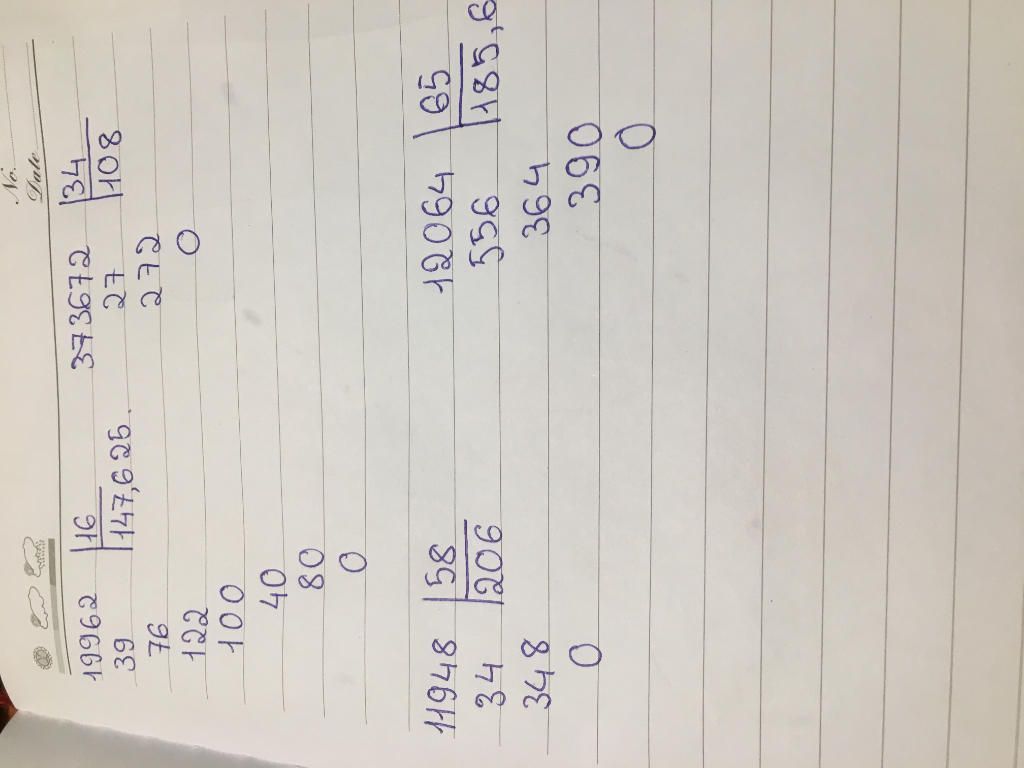 No.
Date
19962 |16 373672 |34
39 |147,625. 27 |108
76 272
122 0
100
40
80
0
11948 |58 12064 |65
34 |206 556 |185,6
348 364
0 390
0